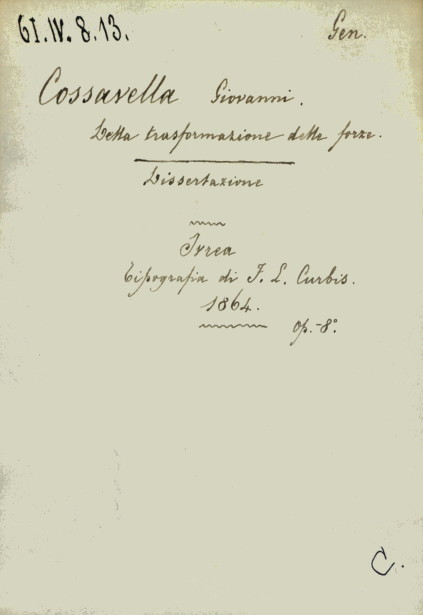 61.IV.8.13.
Gen.
Cossavella Giovanni.
Della trasformazione delle forze.
Dissertazione
Ivrea
Tipografia di F. L. Curbis.
1864.
op.-8°.
C.